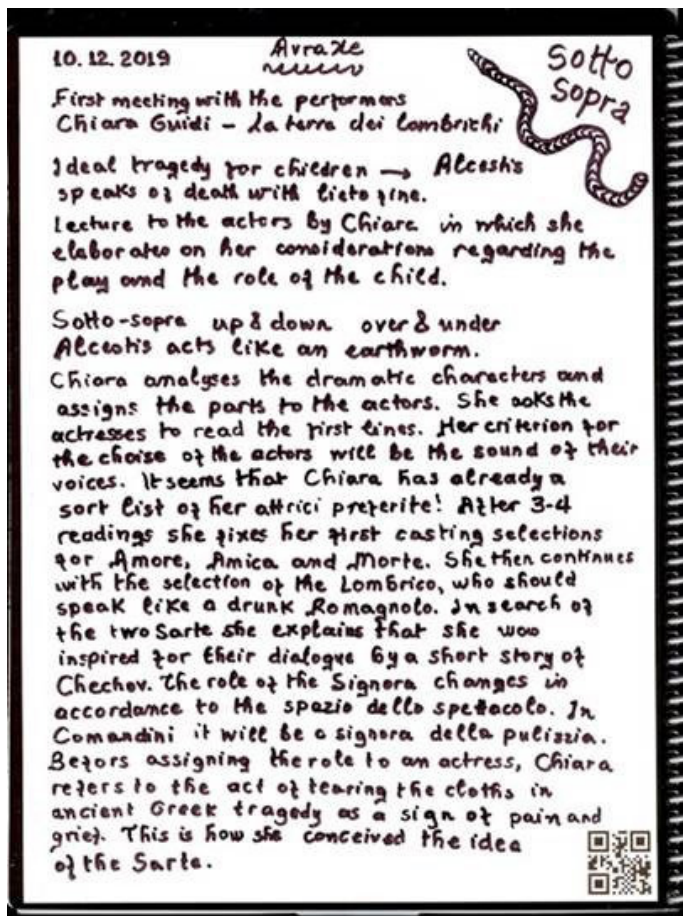 10.12.2019
AvraXe
Sotto
Sopra
First meeting with the performers
Chiara Guidi – La terra dei lombrichi
Ideal tragedy for children → Alcestis
speaks of death with lieto fine.
Lecture to the actors by Chiara in which she
elaborates on her considerations regarding the
play and the role of the child.
Sotto-sopra up & down over & under
Alcestis acts like an earthworm.
Chiara analyses the dramatic characters and
assigns the parts to the actors. She asks the
actresses to read the first lines. Her criterion for
the choise of the actors will be the sound of their
voices. It seems that Chiara has already a
sort list of her attrici preferite! After 3-4
readings she fixes her first casting selections
for Amore, Amica and Morte. She then continues
with the selection of the Lombrico, who should
speak like a drunk Romagnolo. In search of
the two Sarte she explains that she was
inspired for their dialogue by a short story of
Chechov. The role of the Signora changes in
accordance to the spazio dello spettacolo. In
Comandini it will be a signora della pulizzia.
Before assigning the role to an actress, Chiara
refers to the act of tearing the cloths in
ancient Greek tragedy as a sign of pain and
grief. This is how she conceived the idea
of the Sarte.